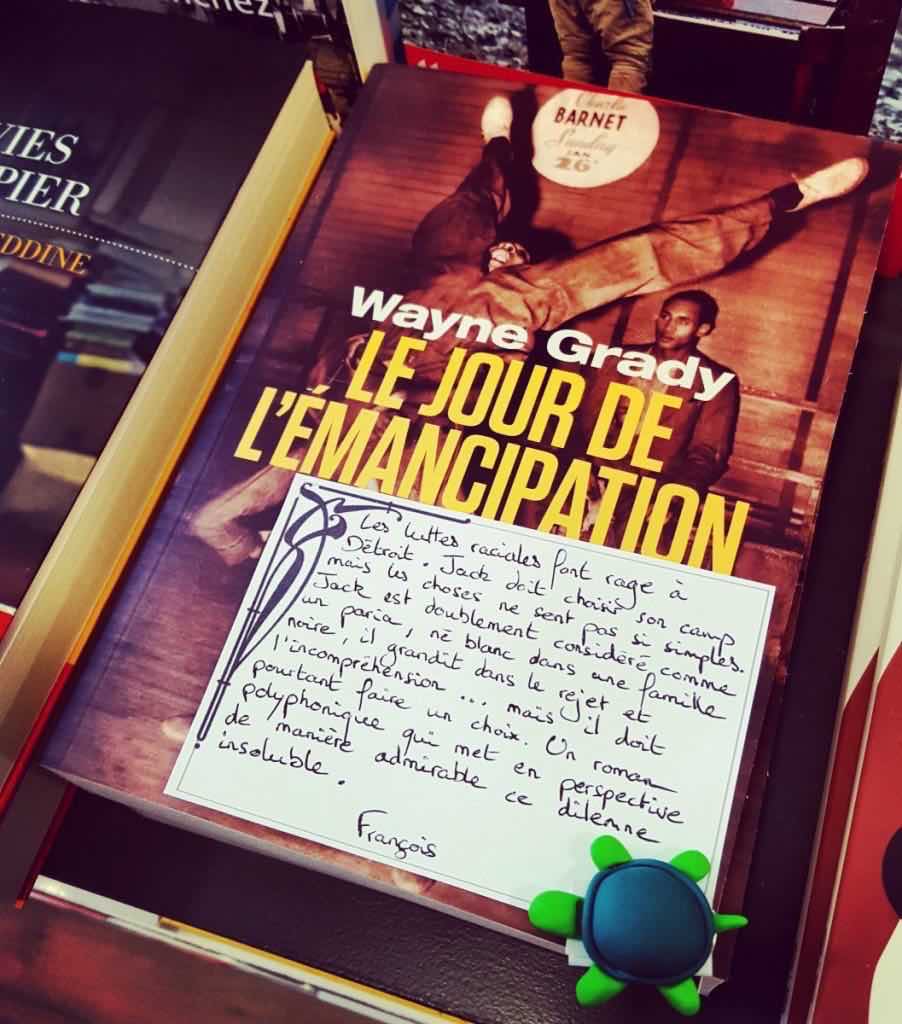 VIES
PIER
EDDINE
Charlie
BARNET
Sunday
JAN.
26
Wayne Grady
LE JOUR DE
L'ÉMANCIPATION
Les luttes raciales font rage à
Détroit. Jack doit choisir son camp
mais les choses ne sont pas si simples.
Jack est doublement considéré comme
un paria, né blanc dans une famille
noire, il grandit dans le rejet et
l'incompréhension... mais il doit
pourtant faire un choix. Un roman
polyphonique qui met en perspective
de manière admirable ce dilemne
insoluble.
François